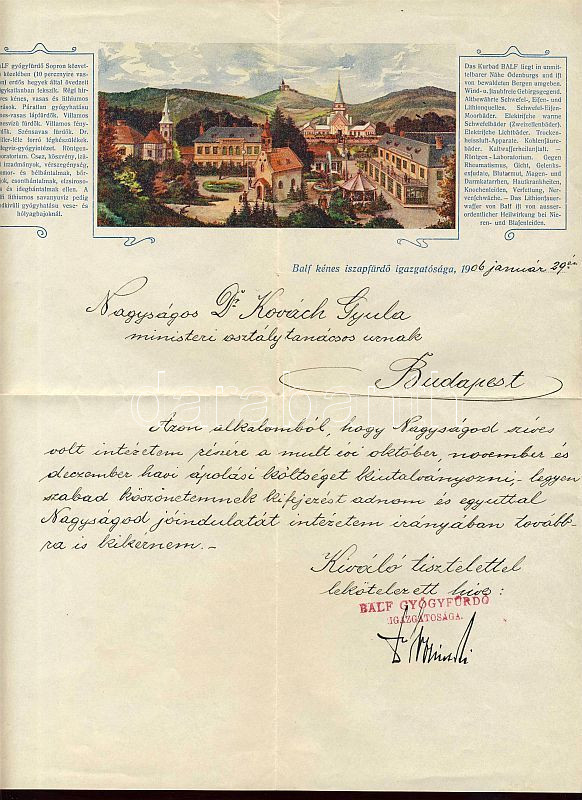 ALF gyógyfürdő Sopron közvet-
közelében (10 percznyire vas-
) erdős hegyek által övedzett
fekszik. Régi hír-
kénes, vasas és lithiumos
Páratlan gyógyhatású
nes-vasas lápfürdők. Villamos
Villamos fény-
Szénsavas fürdők. Dr.
Röntgen-
Csúz, köszvény,
vérszegénység,
és bélbántalmak, bőr-
csonthántalmak, elzsíroso-
és idegbántalmak ellen. A
lithiumos savanyuvíz pedig
gyógyhatású vese- és
hólyagbajoknál.
Das Kurbad BALF liegt in unmit-
telbarer Nähe Ödenburgs und ist
von bewaldeten Bergen umgeben.
Wind- u. staubfreie Gebirgsgegend.
Altbewährte Schwefel-, Eisen- und
Lithionquellen. Schwefel-Eisen-
Moorbäder. Elektrische warme
Schwefelbäder (Zweizellenbäder).
Elektrische Lichtbäder. Trocken-
heissluft-Apparate. Kohlensäure-
bäder. Kaltwasserheilanstalt. –
Röntgen-Laboratorium. Gegen
Rheumatismus, Gicht, Gelenks-
exsudate, Blutarmut, Magen- und
Darmkatarrhen, Hautkrankheiten,
Knochenleiden, Verfettung, Ner-
venschwäche. – Das Lithionsauer-
wasser von Balf ist von ausser-
ordentlicher Heilwirkung bei Nie-
ren- und Blasenleiden.
Balf kénes iszapfürdő igazgatósága, 1906 január 29én
Nagyságos Dr Kovách Gyula
ministeri osztálytanácsos urnak
Budapest
Azon alkalomból, hogy Nagyságod szíves
volt intézetem részére a mult évi október, november és
deczember havi ápolási költséget kiutalványozni, – legyen
szabad köszönetemnek kifejezést adnom és egyuttal
Nagyságod jóindulatát intézetem irányában tovább-
ra is kikérnem. –
Kiváló tisztelettel
lekötelezett híve:
BALF GYÓGYFÜRDŐ
IGAZGATÓSÁGA.
darabanth